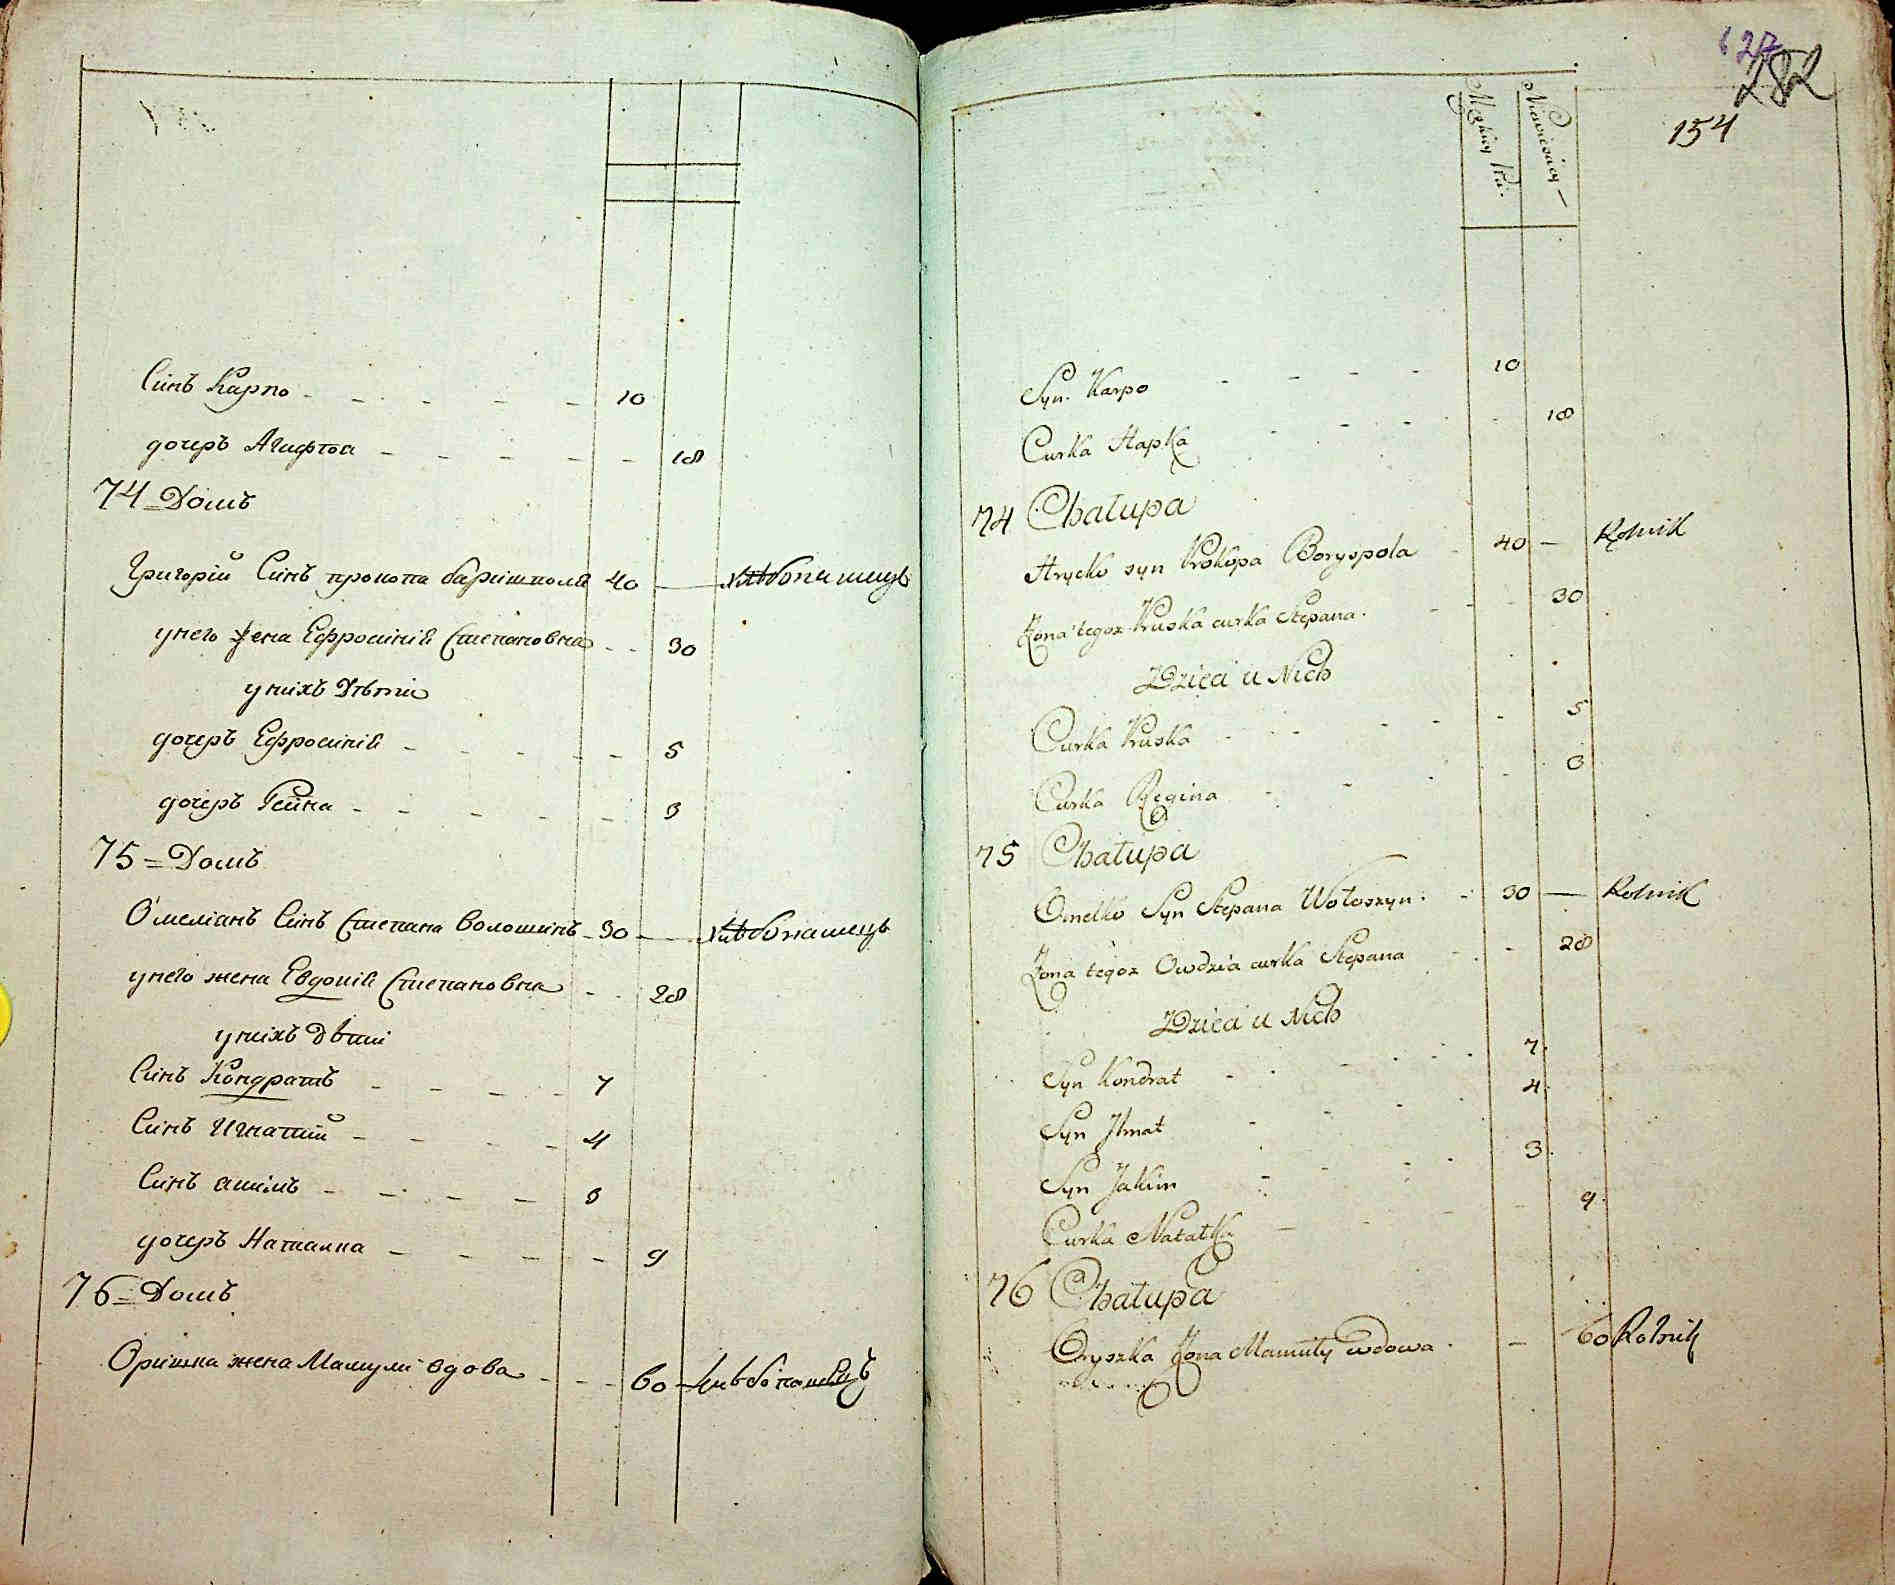 Синъ Карпо - - - - - 10
дочеръ Агафтоа - - - - - 18
74 = Домъ
Григорій Синъ прокопа баришполя 40 — хлѣбопашецъ
унего жена Ефросиніѣ Степановна - - 30
унихъ Дѣти
дочеръ Ефросиніѣ - - - - - 5
дочеръ Геина - - - - - 3
75 = Домъ
Омеліанъ Синъ Степана Волошинъ - 30 — хлѣбопашецъ
унего жена Евдокіѣ Степановна - - 28
унихъ Дѣти
Синъ Кондратъ - - - - 7
Синъ Игнатий - - - - 4
Синъ акимъ - - - - 3
дочеръ Наталка - - - - 9
76 = Домъ
Оришка жена Мамули вдова - - - 60 — хлѣбопашецъ
627
282
154
Męzkiey Płci
Niewieściey —
Syn Karpo - - - - 10
Curka Hapka - - - - 18
74 Chałupa
Hryćko syn Prokopa Boryspola - 40 — Rolnik
Żona tegoż Pruska curka Stepana - - - 30
Dzieci u Nich
Curka Pruska - - - - - 5
Curka Regina - - - - 3
75 Chałupa
Omelko Syn Stepana Wołoszyn - 30 — Rolnik
Żona tegoż Owdzia curka Stepana - - 28
Dzieci u Nich
Syn Kondrat - - - - 7
Syn Ihnat - - - - 4
Syn Jakim - - - - 3
Curka Natałka - - - 9
76 Chałupa
Oryszka Żona Mamuły wdowa - — 60 Rolnik